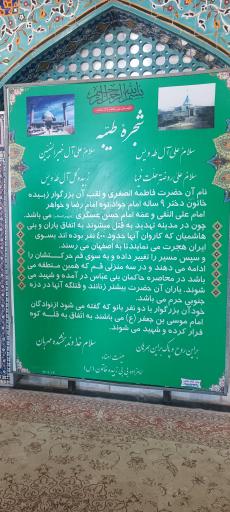 بسم الله الرحمن الرحیم
شجره طیبه
سلام علی آل طه و یس
سلام علی آل خیر النبیین
سلام علی روضة حلت فیها
زبیده آل طه و یس
نام آن حضرت فاطمه الصغری و لقب آن بزرگوار زبیده
خاتون دختر ۹ ساله امام جوادنواه امام رضا و خواهر
امام علی النقی و عمه امام حسن عسکری می باشد.
چون در مدینه تهدید به قتل میشوند به اتفاق یاران و بنی
هاشمیان که کاروان آنها حدود ۴۰۰ نفر بوده اند بسوی
ایران هجرت می نمایند تا به اصفهان می رسند.
و سپس مسیر را تغییر داده و به سوی قم حرکتشان را
ادامه می دهند و در سه منزلی قم که همین منطقه می
باشد در محاصره حاکمان بنی عباس در آمده و شهید می
شوند. یاران آن حضرت بیشتر زنانند و قتلگه آنها در دزه
جنوبی حرم می باشد.
خود آن بزرگوار با دو نفر بانو که گفته می شود ازنوادگان
امام موسی بن جعفر (ع) می باشند به اتفاق به قله کوه
فرار کرده و شهید می شوند.
براین روح و پاک براین مهربان
سلام خداوند بخشنده مهربان
هیئت امناء
امامزاده بی بی زبیده خاتون (س)